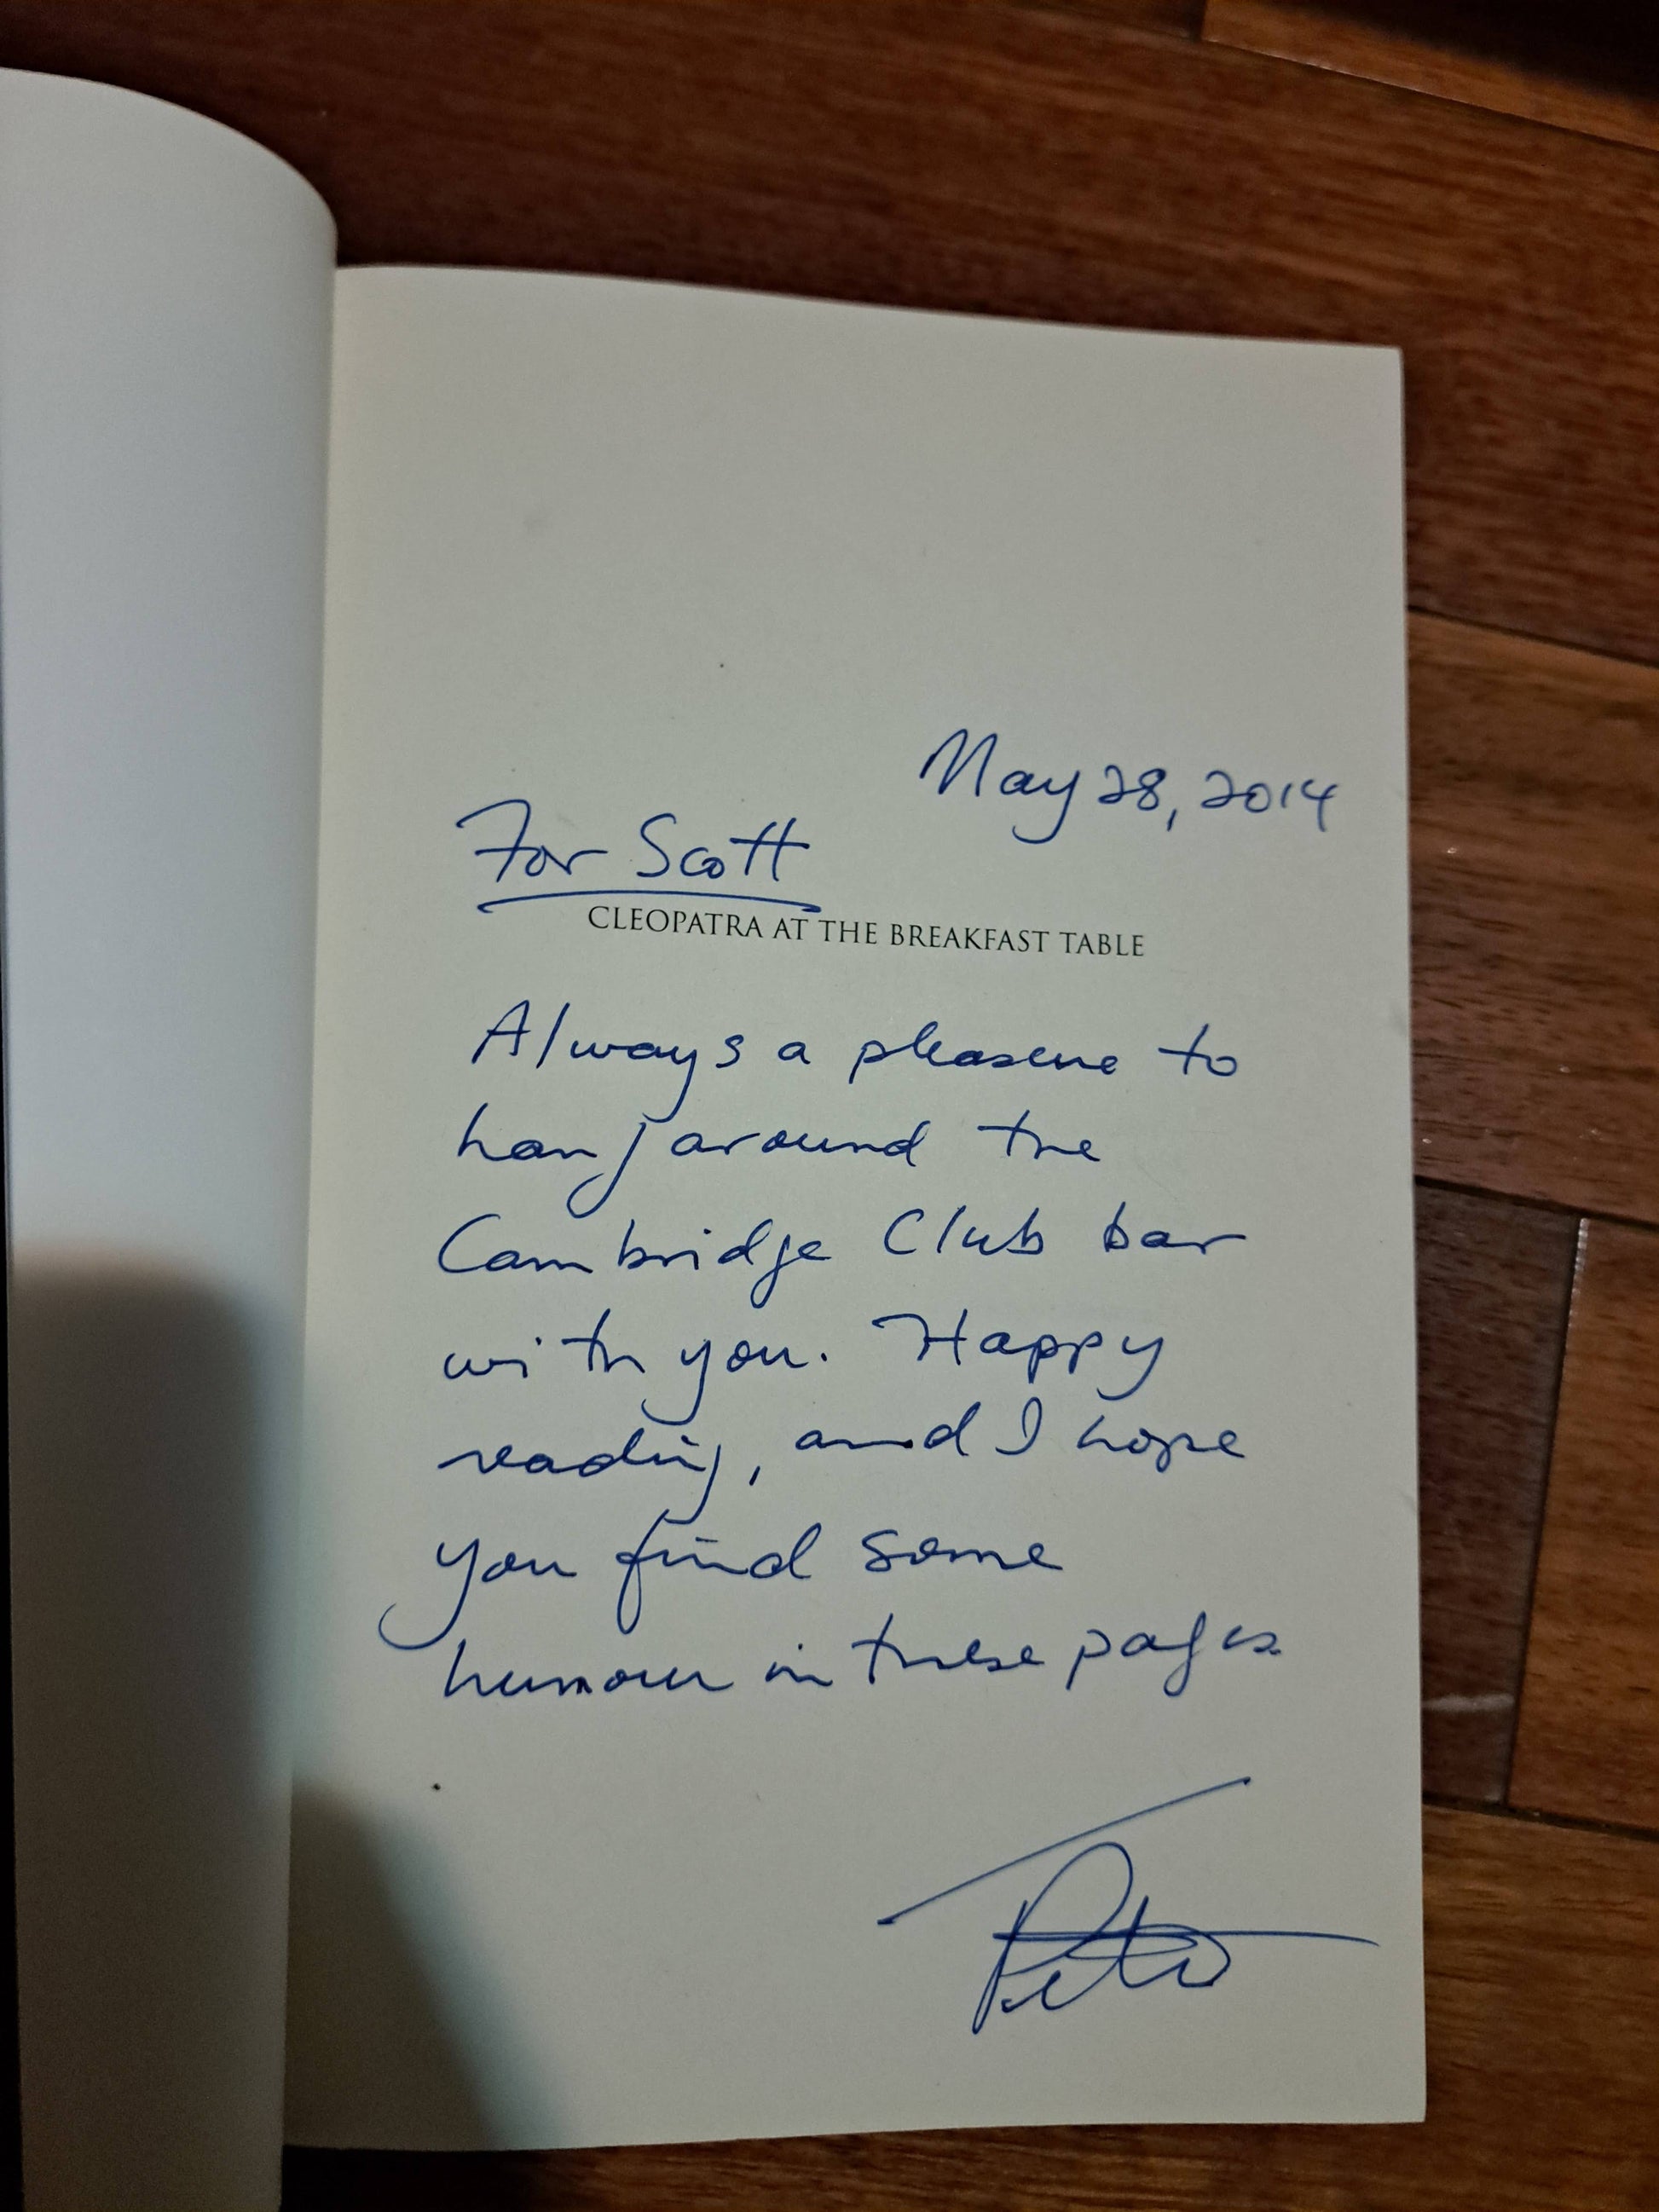 May 28, 2014
For Scott
CLEOPATRA AT THE BREAKFAST TABLE
Always a pleasure to
hang around the
Cambridge Club bar
with you. Happy
reading, and I hope
you find some
humour in these pages
Peter